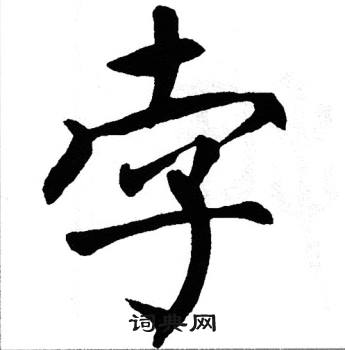 孛
词典网